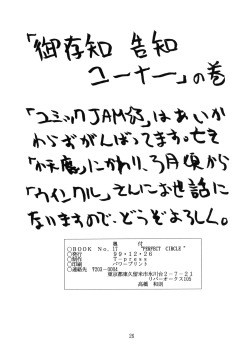 「御存知 告知
コーナー」の巻
「コミックJAM」はあいか
わらずがんばってます。
にかわり、3月頃から
「ウインクル」さんにお世話に
なりますので、どうぞよろしく。
奥 付
○BOOK No. 17 "PERFECT CIRCLE"
○発行 99・12・26
○制作 T-press
○印刷 パワープリント
○連絡先 〒203-0004
東京都東久留米市氷川台2-7-21
リバーオークス105
高橋 和則
26